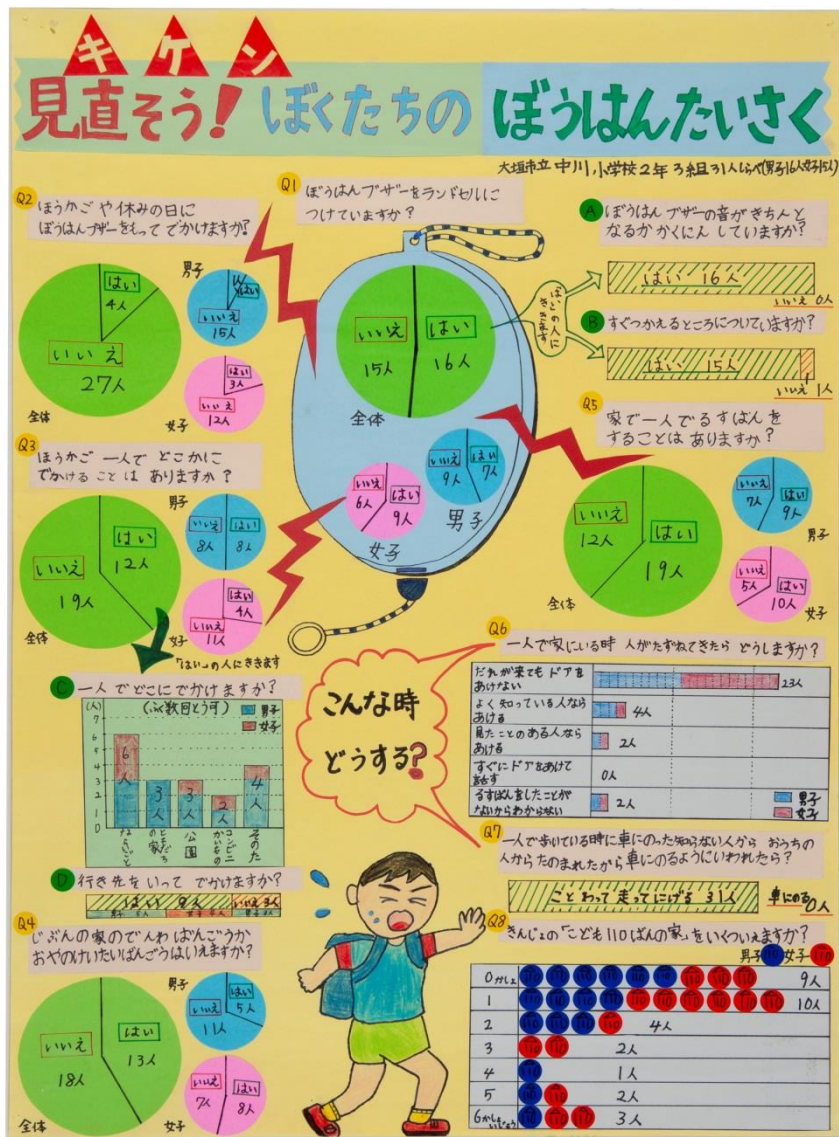 キケン
見直そう! ぼくたちの ぼうはんたいさく
大垣市立中川小学校2年3組31人しらべ(男子16人女子15人)
Q1
ぼうはんブザーをランドセルに
つけていますか?
いいえ
15人
はい
16人
全体
いいえ
6人
はい
9人
女子
いいえ
9人
はい
7人
男子
「はい」の人に
ききます
A
ぼうはんブザーの音がきちんと
なるか かくにん していますか?
はい 16人
いいえ 0人
B
すぐつかえるところについていますか?
はい 15人
いいえ 1人
Q2
ほうかごや休みの日に
ぼうはんブザーをもって でかけますか?
はい
4人
いいえ
27人
全体
男子
はい
いいえ
15人
はい
3人
いいえ
12人
女子
Q3
ほうかご 一人で どこかに
でかけることは ありますか?
はい
12人
いいえ
19人
全体
男子
いいえ
8人
はい
8人
はい
4人
いいえ
11人
女子
「はい」の人にききます
C
一人で どこにでかけますか?
(ふく数回とう可)
男子
女子
(人)
7
6
5
4
3
2
1
0
6人
3人
3人
2人
4人
ならいごと
ともだちの家
公園
コンビニ
かいもの
そのた
D
行き先をいって でかけますか?
はい 9人
いいえ 3人
Q4
じぶんの家のでんわばんごうか
おやのけいたいばんごうはいえますか?
いいえ
18人
はい
13人
全体
男子
はい
5人
いいえ
11人
いいえ
7人
はい
8人
女子
Q5
家で一人でるすばんを
することは ありますか?
いいえ
12人
はい
19人
全体
いいえ
7人
はい
9人
男子
いいえ
5人
はい
10人
女子
こんな時
どうする?
Q6
一人で家にいる時 人がたずねてきたら どうしますか?
だれが来ても ドアを
あけない
23人
よく知っている人なら
あける
4人
見たことのある人なら
あける
2人
すぐにドアをあけて
話す
0人
るすばんをしたことが
ないからわからない
2人
男子
女子
Q7
一人で歩いている時に車にのった知らない人から おうちの
人からたのまれたから車にのるようにいわれたら?
ことわって走ってにげる 31人
車にのる
0人
Q8
きんじょの「こども110ばんの家」をいくついえますか?
男子 110 女子 110
0かしょ 9人
1 10人
2 4人
3 2人
4 1人
5 2人
6かしょいじょう 3人